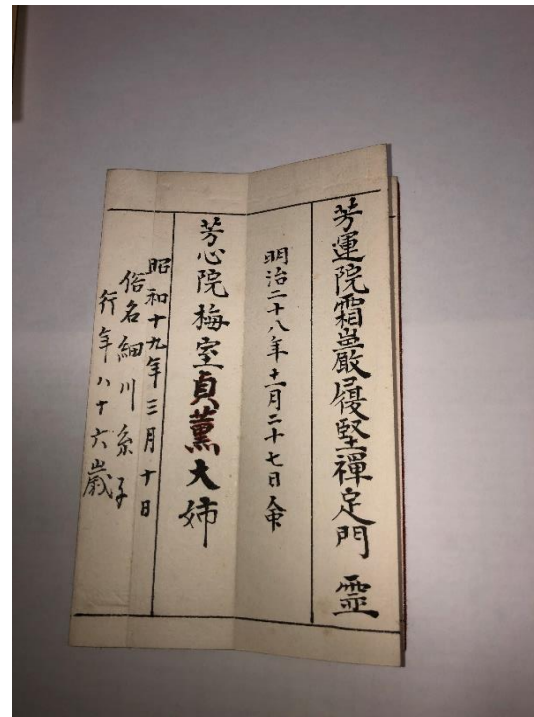 芳運院霜巌履堅禅定門 霊
明治二十八年十一月二十七日
芳心院梅室貞薫大姉
昭和十九年三月十日
俗名細川糸子
行年八十六歳